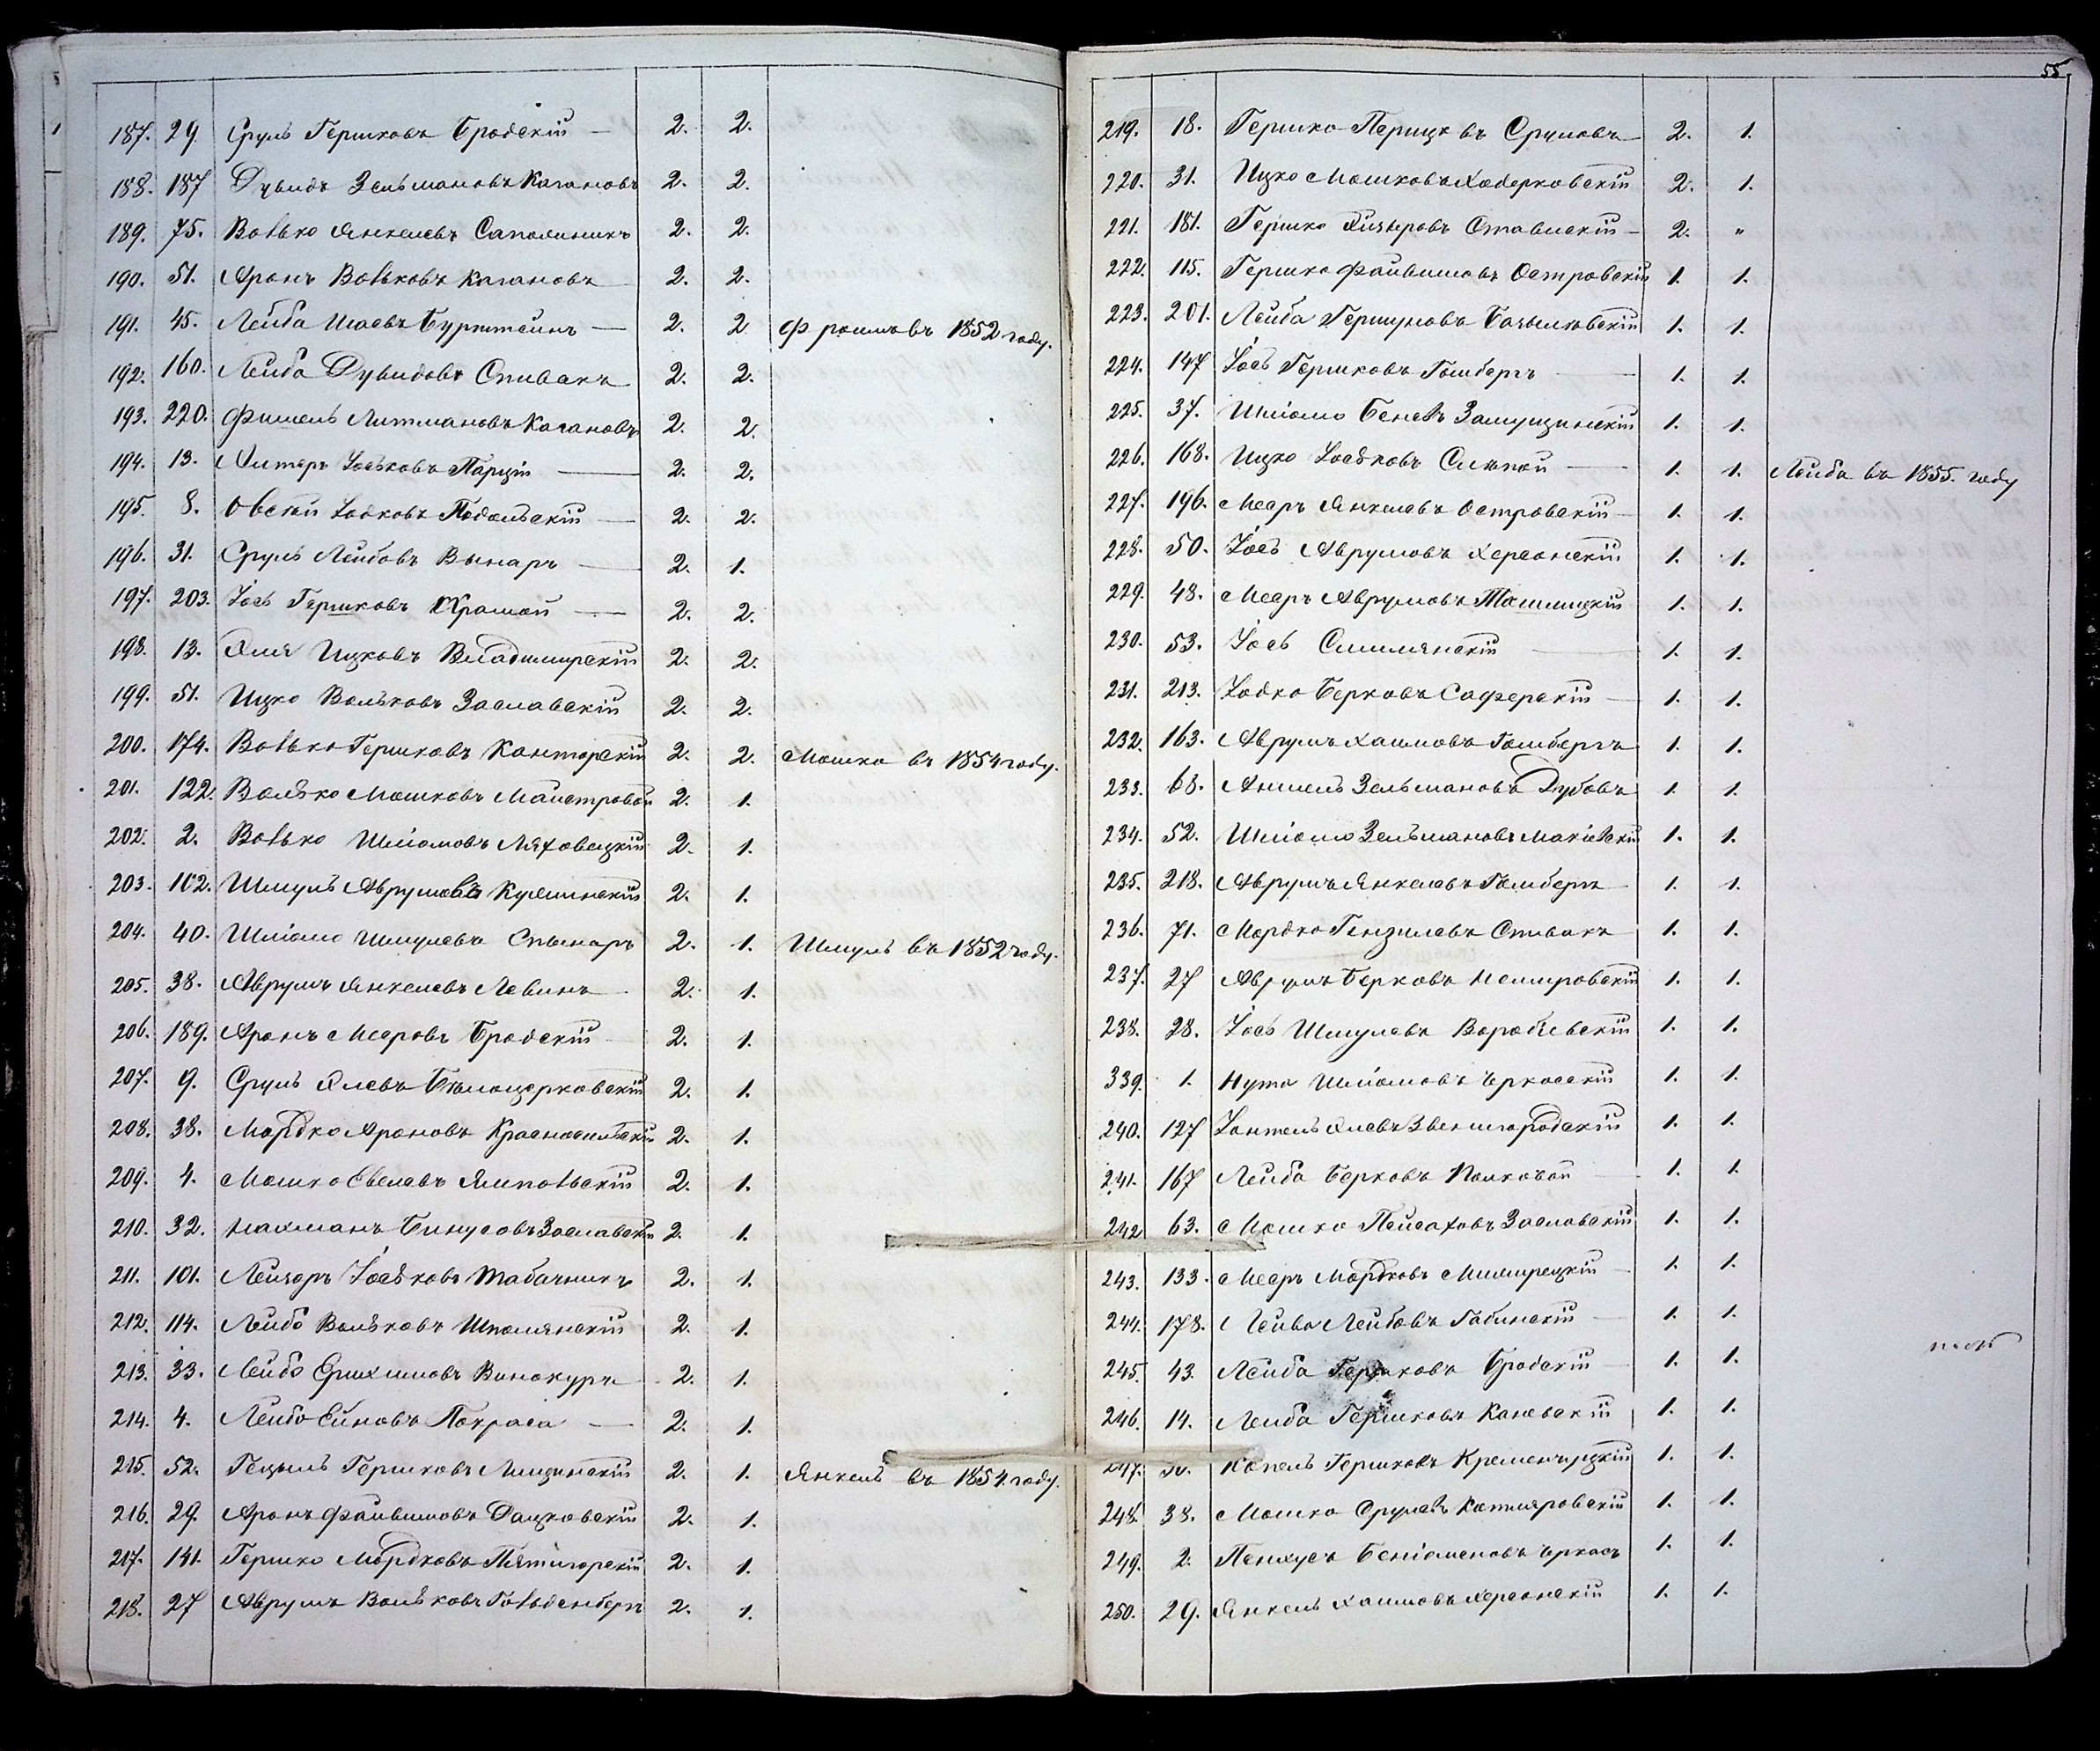 187. 29. Сруль Гершковъ Бродскій — 2. 2.
188. 187 Дувидъ Зельмановъ Кагановъ 2. 2.
189. 75. Волько Янкелевъ Сапожникъ 2. 2.
190. 51. Аронъ Вольковъ Кагановъ 2. 2.
191. 45. Лейба Шаевъ Бурштейнъ — 2. 2 въ 1852 году.
192. 160. Лейба Дувидовъ Спивакъ 2. 2.
193. 220. Фишель Литмановъ Кагановъ 2. 2.
194. 13. Алтеръ Іоськовъ — 2. 2.
195. 8. Овсей Іодковъ Подольскій — 2. 2.
196. 31. Сруль Лейбовъ Винаръ — 2. 1.
197. 203. Іось Гершковъ Храмой — 2. 2.
198. 13. Эля Ицковъ Владимирскій 2. 2.
199. 51. Ицко Вольковъ Заславскій 2. 2.
200. 174. Волько Гершковъ Канторскій 2. 2. Мошко въ 1854 году.
201. 122. Волько Мошковъ Майстровой 2. 1.
202. 2. Волько Шліомовъ Ляховецкій 2. 1.
203. 102. Шмуль Аврумовъ 2. 1.
204. 40. Шліомо Шмулевъ 2. 1. Шмуль въ 1852 году.
205. 38. Аврумъ Янкелевъ Левинъ 2. 1.
206. 189. Аронъ Мееровъ Бродскій 2. 1.
207. 9. Сруль Элевъ Бѣлоцерковскій 2. 1.
208. 38. Мордко Ароновъ Красносельскій 2. 1.
209. 4. Мошко Евелевъ Ямпольскій 2. 1.
210. 32. Нахманъ Бинусовъ Заславскій 2. 1.
211. 101. Лейзоръ Іоськовъ Табачникъ 2. 1.
212. 114. Лейба Вольковъ Шполянскій 2. 1.
213. 33. Лейба Срихимовъ Винокуръ 2. 1.
214. 4. Лейба Ейновъ Покраса — 2. 1.
215. 52. Гецель Гершковъ Лищинскій 2. 1. Янкель въ 1854 году.
216. 29. Аронъ Файвишовъ Дацковскій 2. 1.
217. 141. Гершко Мордковъ Пятигорскій 2. 1.
218. 27 Аврумъ Вольковъ Гольденбергъ 2. 1.
55.
219. 18. Гершко въ Сруловъ 2. 1.
220. 31. Ицко Мошковъ Ходорковскій 2. 1.
221. 181. Гершко Лизеровъ Ставискій — 2. "
222. 115. Гершко Файвишовъ Островскій 1. 1.
223. 201. Лейба Гершуновъ 1. 1.
224. 147 Іось Гершковъ Гольбергъ — 1. 1.
225. 37. Шліомо Беневъ 1. 1.
226. 168. Ицко Іоськовъ Слѣпой — 1. 1. Лейба въ 1855. году
227. 196. Меаръ Янкелевъ Островскій — 1. 1.
228. 50. Іось Аврумовъ Херсонскій 1. 1.
229. 48. Меаръ Аврумовъ Ташлицкій 1. 1.
230. 53. Іось Смилянскій — 1. 1.
231. 213. Іодко Берковъ Саферскій — 1. 1.
232. 163. Аврумъ Хаимовъ Гольбергъ 1. 1.
233. 68. Аншель Зельмановъ Дубовъ 1. 1.
234. 52. Шліомо Зельмановъ Макіевскій 1. 1.
235. 218. Аврумъ Янкелевъ Гольбергъ 1. 1.
236. 71. Мордко Гензилевъ Спивакъ 1. 1.
237. 27 Аврумъ Берковъ Немировскій 1. 1.
238. 28. Іось Шмулевъ Воробьевскій 1. 1.
339. 1. Нута Шліомовъ Черкаскій 1. 1.
240. 127 Элевъ Звенигородскій 1. 1.
241. 167 Лейба Берковъ Полковой — 1. 1.
242 63. Мошко Пейсаховъ Заславскій 1. 1.
243. 133. Меаръ Мордковъ — 1. 1.
244. 178. Лейба Лейбовъ Габинскій 1. 1.
245. 43. Лейба Гершковъ Бродскій 1. 1.
246. 14. Лейба Гершковъ Каневскій 1. 1.
247. Копель Гершковъ Кременчуцкій 1. 1.
248. 38. Мошко Срулевъ Котляровскій 1. 1.
249. 2. Пинхусъ Беніоменовъ Черкасъ 1. 1.
250. 29. Янкель Хаимовъ Херсонскій 1. 1.